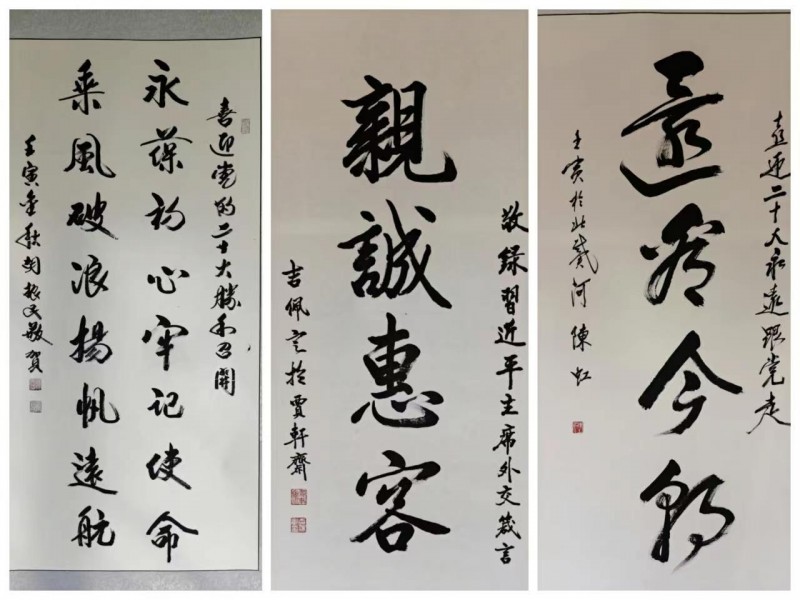 喜迎党的二十大勝利召開
永葆初心牢记使命
乘風破浪揚帆遠航
壬寅金秋
敬賀
敬録習近平主席外交箴言
親誠惠容
吉佩定於賈軒齋
喜迎二十大永遠跟党走
還看今朝
壬寅於北戴河陳虹